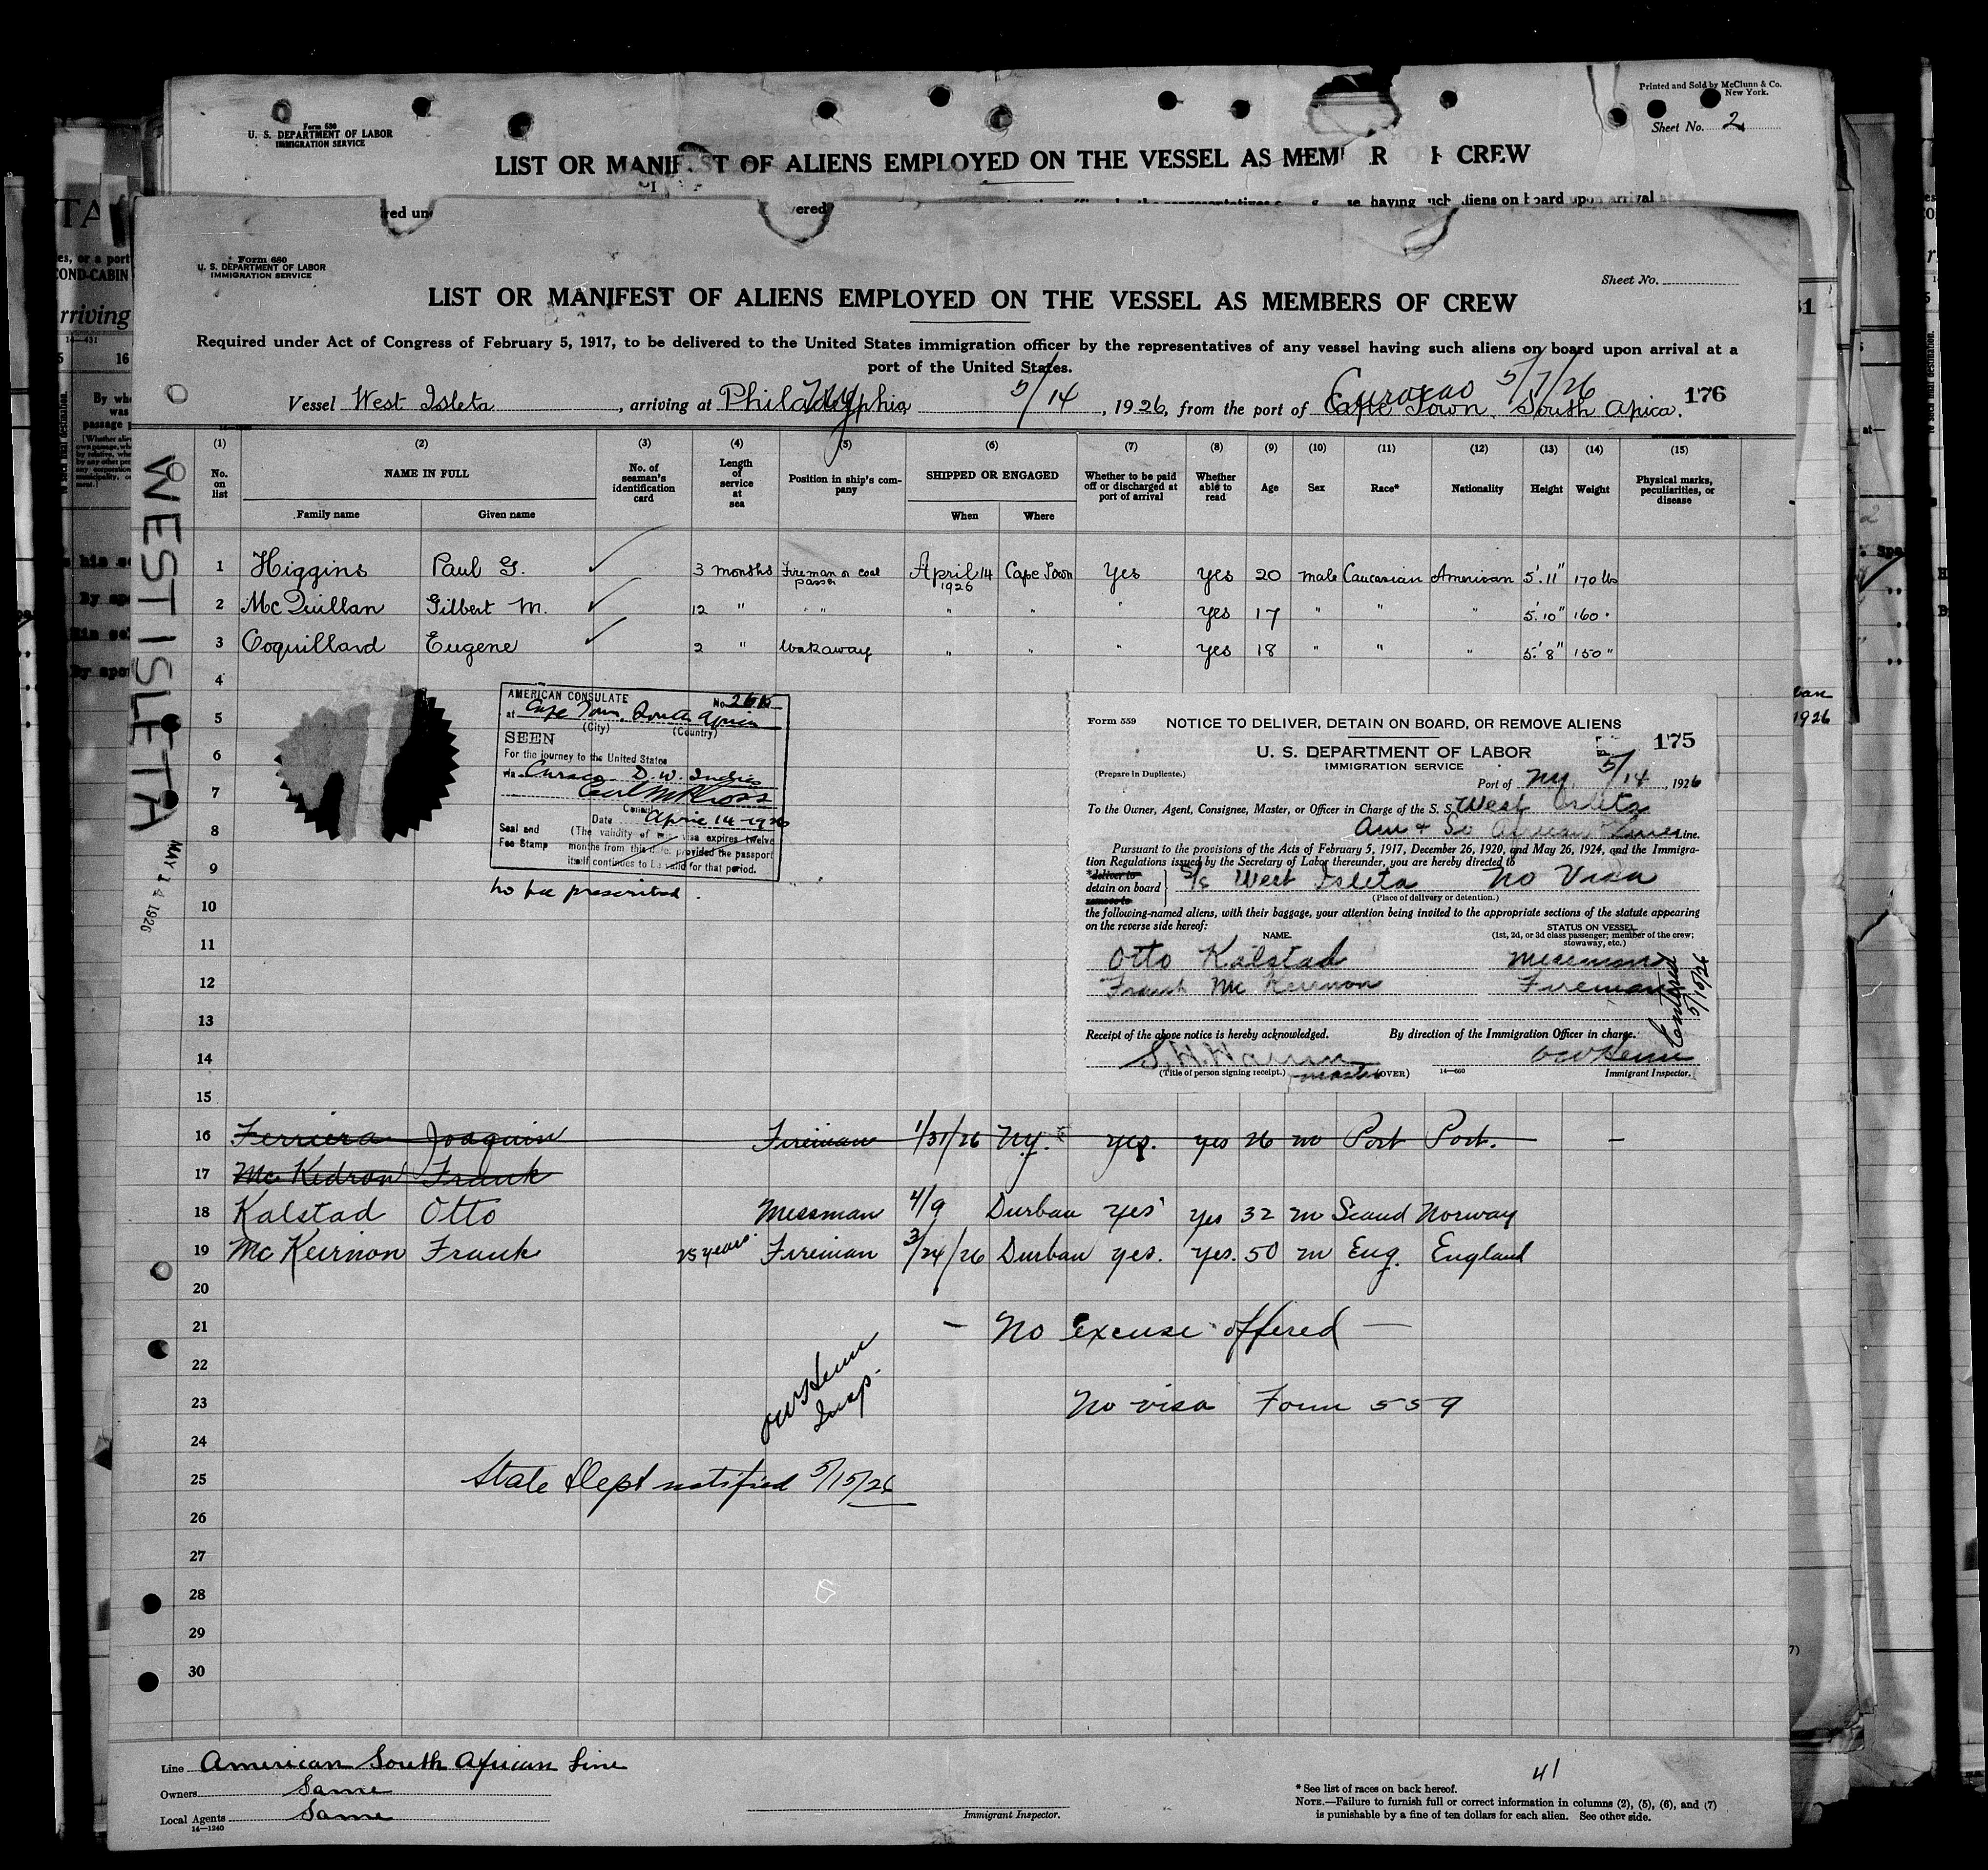 Printed and Sold by McClunn & Co.
New York.
Form 680
U. S. DEPARTMENT OF LABOR
IMMIGRATION SERVICE
Sheet No. 2
LIST OR MANIF ST OF ALIENS EMPLOYED ON THE VESSEL AS MEM R CREW
Form 680
U. S. DEPARTMENT OF LABOR
IMMIGRATION SERVICE
Sheet No.
LIST OR MANIFEST OF ALIENS EMPLOYED ON THE VESSEL AS MEMBERS OF CREW
Required under Act of Congress of February 5, 1917, to be delivered to the United States immigration officer by the representatives of any vessel having such aliens on board upon arrival at a
port of the United States.
Curacao 5/7/26
Vessel West Isleta, arriving at Philadelphia NY 5/14, 1926, from the port of Cape Town. South Africa. 176
(1) (2) (3) (4) (5) (6) (7) (8) (9) (10) (11) (12) (13) (14) (15)
No. on list
NAME IN FULL
Family name
Given name
No. of seaman's identification card
Length of service at sea
Position in ship's company
SHIPPED OR ENGAGED
When
Where
Whether to be paid off or discharged at port of arrival
Whether able to read
Age
Sex
Race*
Nationality
Height
Weight
Physical marks, peculiarities, or disease
1 Higgins Paul G. 3 months Fireman or coal passer April 14 1926 Cape Town Yes Yes 20 male Caucasian American 5'.11" 170 lbs
2 McQuillan Gilbert M. 12 " " " " " " Yes 17 " " " 5'.10" 160 "
3 Coquillard Eugene 2 " Wokaway " " " Yes 18 " " " 5'.8" 150 "
4
5
6
7
8
9
10
11
12
13
14
15
WEST ISLETA
MAY 14 1926
AMERICAN CONSULATE
No
at Cape Town, South Africa
(City) (Country)
SEEN
For the journey to the United States
via Curacao D. W. Indies
Consul
Date April 14-1926
Seal and Fee Stamp
(The validity of this visa expires twelve
months from this date, provided the passport
itself continues to be valid for that period.
no fee prescribed.
Form 559
NOTICE TO DELIVER, DETAIN ON BOARD, OR REMOVE ALIENS
U. S. DEPARTMENT OF LABOR
IMMIGRATION SERVICE
175
(Prepare in Duplicate.)
Port of NY, 5/14, 1926
To the Owner, Agent, Consignee, Master, or Officer in Charge of the S. S. West Isleta
Am & So African Line Line.
Pursuant to the provisions of the Acts of February 5, 1917, December 26, 1920, and May 26, 1924, and the Immigra-
tion Regulations issued by the Secretary of Labor thereunder, you are hereby directed to
*deliver to
detain on board
remove to
S/S West Isleta No Visa
(Place of delivery or detention.)
the following-named aliens, with their baggage, your attention being invited to the appropriate sections of the statute appearing
on the reverse side hereof:
NAME.
STATUS ON VESSEL
(1st, 2d, or 3d class passenger; member of the crew; stowaway, etc.)
Otto Kalstad Messman
Frank McKeirnon Fireman
Entered 5/15/26
Receipt of the above notice is hereby acknowledged.
By direction of the Immigration Officer in charge.
(Title of person signing receipt.) master (OVER)
14—660
Immigrant Inspector.
16 Ferriera Joaquin Fireman 1/31/26 N.Y. yes. yes 26 m Port Port. —
17 McKedron Frank
18 Kalstad Otto Messman 4/9 Durban yes yes 32 m Scand Norway
19 McKeirnon Frank 25 years. Fireman 3/24/26 Durban yes. yes. 50 m Eng. England
20
21 — No excuse offered —
22
23 No visa Form 559
24
Insp.
25 State Dept notified 5/15/26
26
27
28
29
30
Line American South African Line
Owners Same
Local Agents Same
14—1240
Immigrant Inspector.
41
* See list of races on back hereof.
NOTE.—Failure to furnish full or correct information in columns (2), (5), (6), and (7)
is punishable by a fine of ten dollars for each alien. See other side.